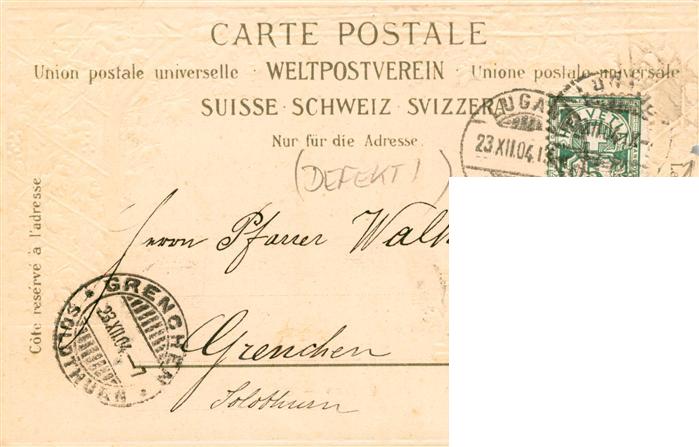 CARTE POSTALE
Union postale universelle · WELTPOSTVEREIN · Unione postale universale
SUISSE · SCHWEIZ · SVIZZERA
Nur für die Adresse.
(DEFEKT!)
23 XII.04
HELVETIA
5
Côté réservé à l'adresse
Herrn Pfarrer
Grenchen
Solothurn
GRENCHEN
23 XII.04 – 7
(SOLOTHURN)